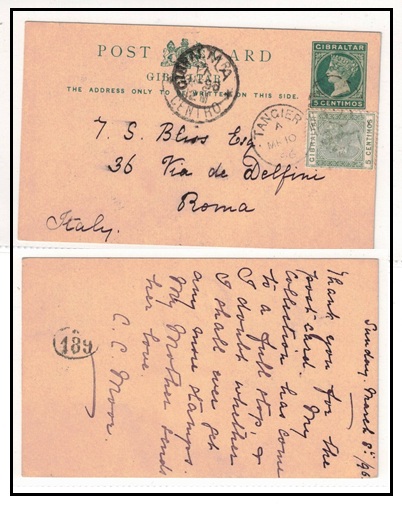 POST CARD
GIBRALTAR
THE ADDRESS ONLY TO BE WRITTEN ON THIS SIDE.
GIBRALTAR
5 CENTIMOS
ROMA
CENTRO
TANGIER
A
MR 10
96
GIBRALTAR
5 CENTIMOS
T. S. Bliss Esq
36 Via de Delfini
Roma
Italy.
Sunday, March 8th /96.
Thank you for the
post card. My
Collection has come
to a full stop, &
I doubt whether
I shall ever get
any more stamps.
My Mother sends
her love.
C. C. Moor.
489